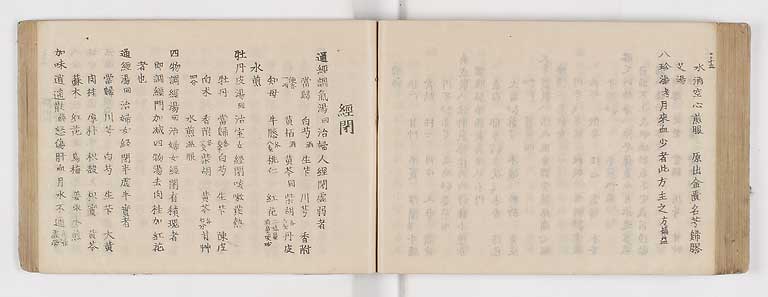 水酒空心煎服 原出金匱名芎歸膠
艾湯
八珍湯 月來血少者此方主之方
經閉
通經調氣湯 治婦人經閉虛弱者
當歸 白芍 生芐 川芎 香附
知母 黃栢 黃芩 柴胡 丹皮
牛膝 桃仁 紅花
水煎
牡丹皮湯 治室女經閉咳嗽發熱
牡丹 當歸 白芍 生芐 陳皮
白朮 香附 柴胡 黃芩 甘艸
水煎温服
四物調經湯 治婦女經閉有積塊者
即調經門加減四物湯去肉桂加紅花
者也
通經湯 治婦女經閉半虛半實者
當歸 川芎 白芍 生芐 大黃
肉桂 厚朴 枳殼 黃芩
蘇木 紅花 烏梅 姜 水煎
加味逍遙散 怒傷肝 血月水不通